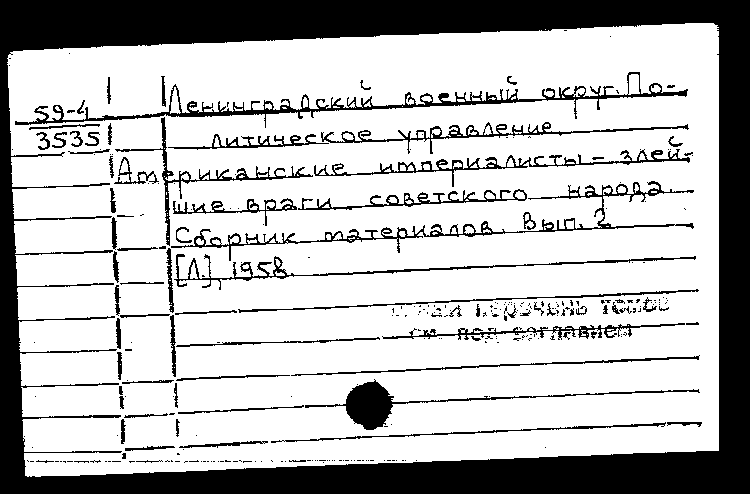 59-4
3535
Ленинградский военный округ. По-
литическое управление.
Американские империалисты – злей-
шие враги советского народа.
Сборник материалов. Вып. 2
[Л], 1958.
перечень томов
см. под заглавием